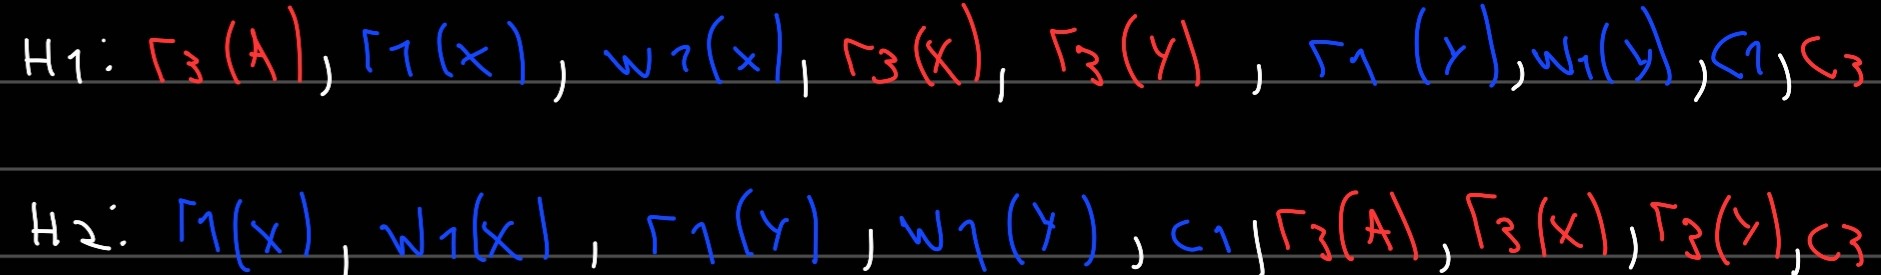 H1: r3(A), r1(X), w1(X), r3(X), r3(Y), r1(Y), w1(Y), c1, c3
H2: r1(X), w1(X), r1(Y), w1(Y), c1, r3(A), r3(X), r3(Y), c3